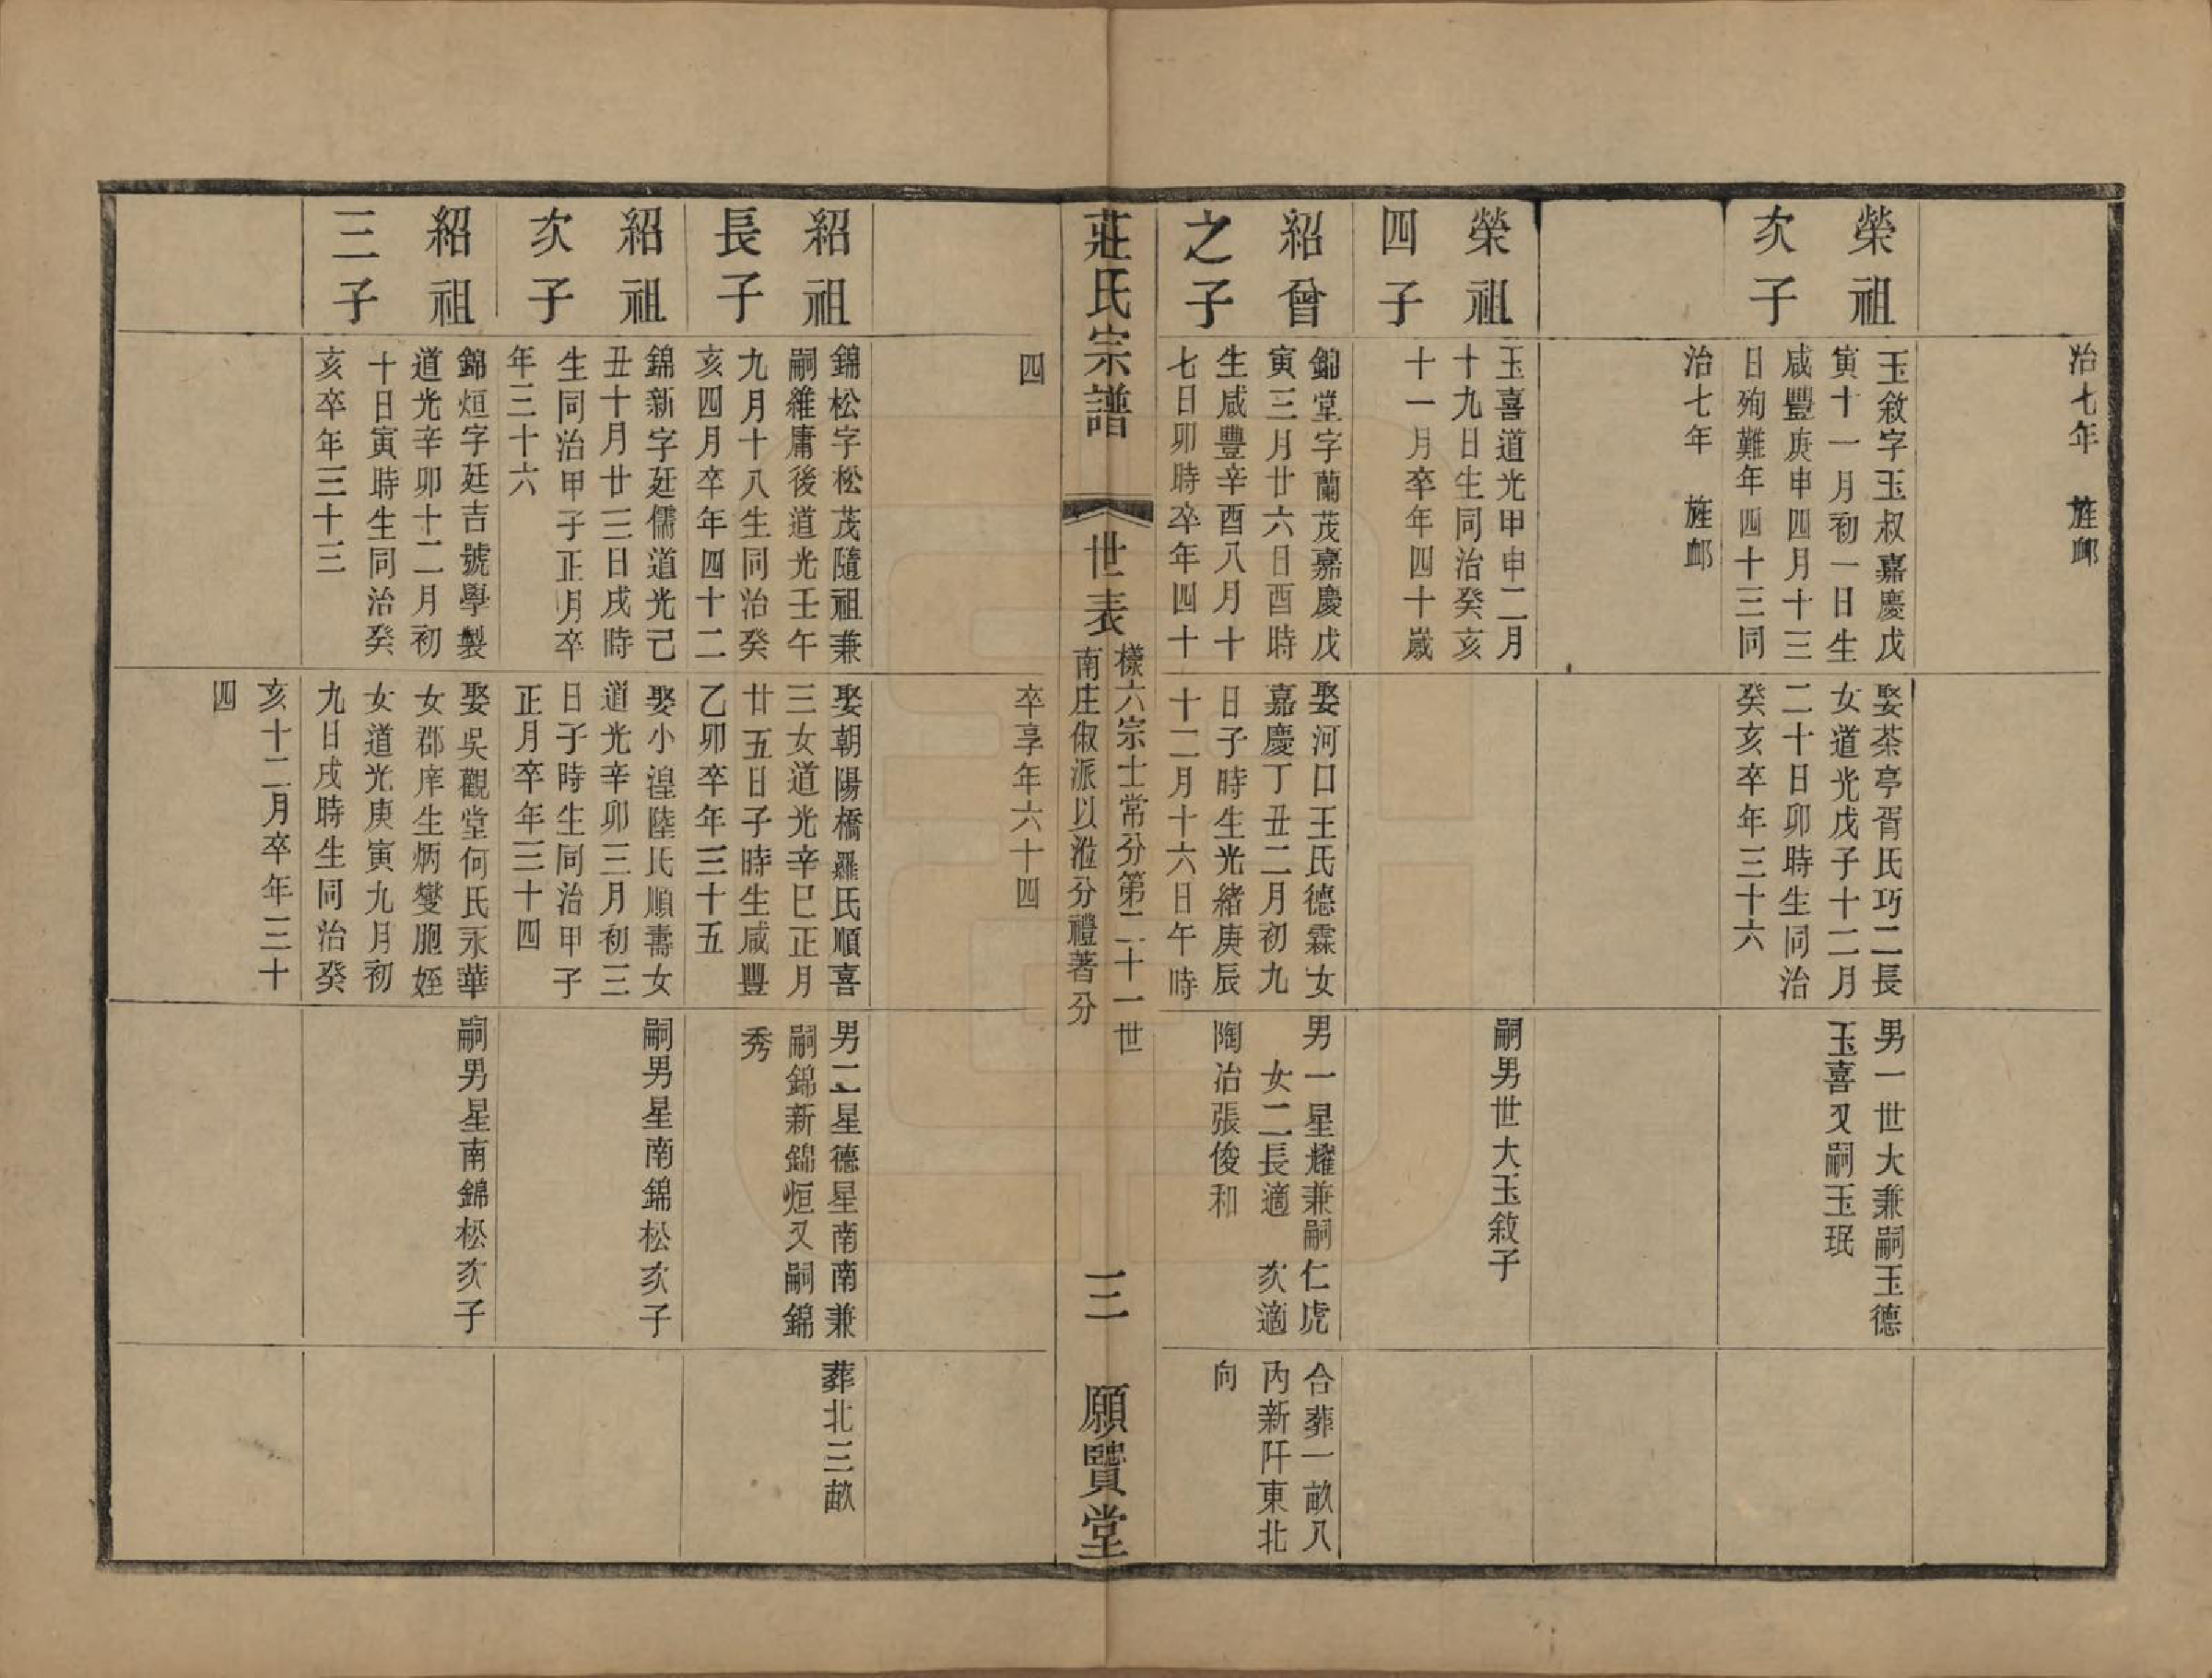 治七年　旌卹
榮祖
次子
玉敘字玉叔嘉慶戊
寅十一月初一日生
咸豐庚申四月十三
日殉難年四十三同
治七年　旌卹
娶茶亭胥氏巧二長
女道光戊子十二月
二十日卯時生同治
癸亥卒年三十六
男一世大兼嗣玉德
玉喜又嗣玉珉
榮祖
四子
玉喜道光甲申二月
十九日生同治癸亥
十一月卒年四十歲
嗣男世大玉敘子
紹曾
之子
錦堂字蘭茂嘉慶戊
寅三月廿六日酉時
生咸豐辛酉八月十
七日卯時卒年四十
四
娶河口王氏德霖女
嘉慶丁丑二月初九
日子時生光緒庚辰
十二月十六日午時
卒享年六十四
男一星耀兼嗣仁虎
女二長適　次適
陶冶張俊和
合葬一畝八
內新阡東北
向
莊氏宗譜
世表
樣六宗士常分第二十一世
南庄俶派以溎分禮著分
三
願賢堂
紹祖
長子
錦松字松茂隨祖兼
嗣維庸後道光壬午
九月十八生同治癸
亥四月卒年四十二
娶朝陽橋羅氏順喜
三女道光辛巳正月
廿五日子時生咸豐
乙卯卒年三十五
男二星德星南南兼
嗣錦新錦烜又嗣錦
秀
葬北三畝
紹祖
次子
錦新字廷儒道光己
丑十月廿三日戌時
生同治甲子正月卒
年三十六
娶小湟陸氏順壽女
道光辛卯三月初三
日子時生同治甲子
正月卒年三十四
嗣男星南錦松次子
紹祖
三子
錦烜字廷吉號學製
道光辛卯十二月初
十日寅時生同治癸
亥卒年三十三
娶吳觀堂何氏永華
女郡庠生炳燮胞姪
女道光庚寅九月初
九日戌時生同治癸
亥十二月卒年三十
四
嗣男星南錦松次子